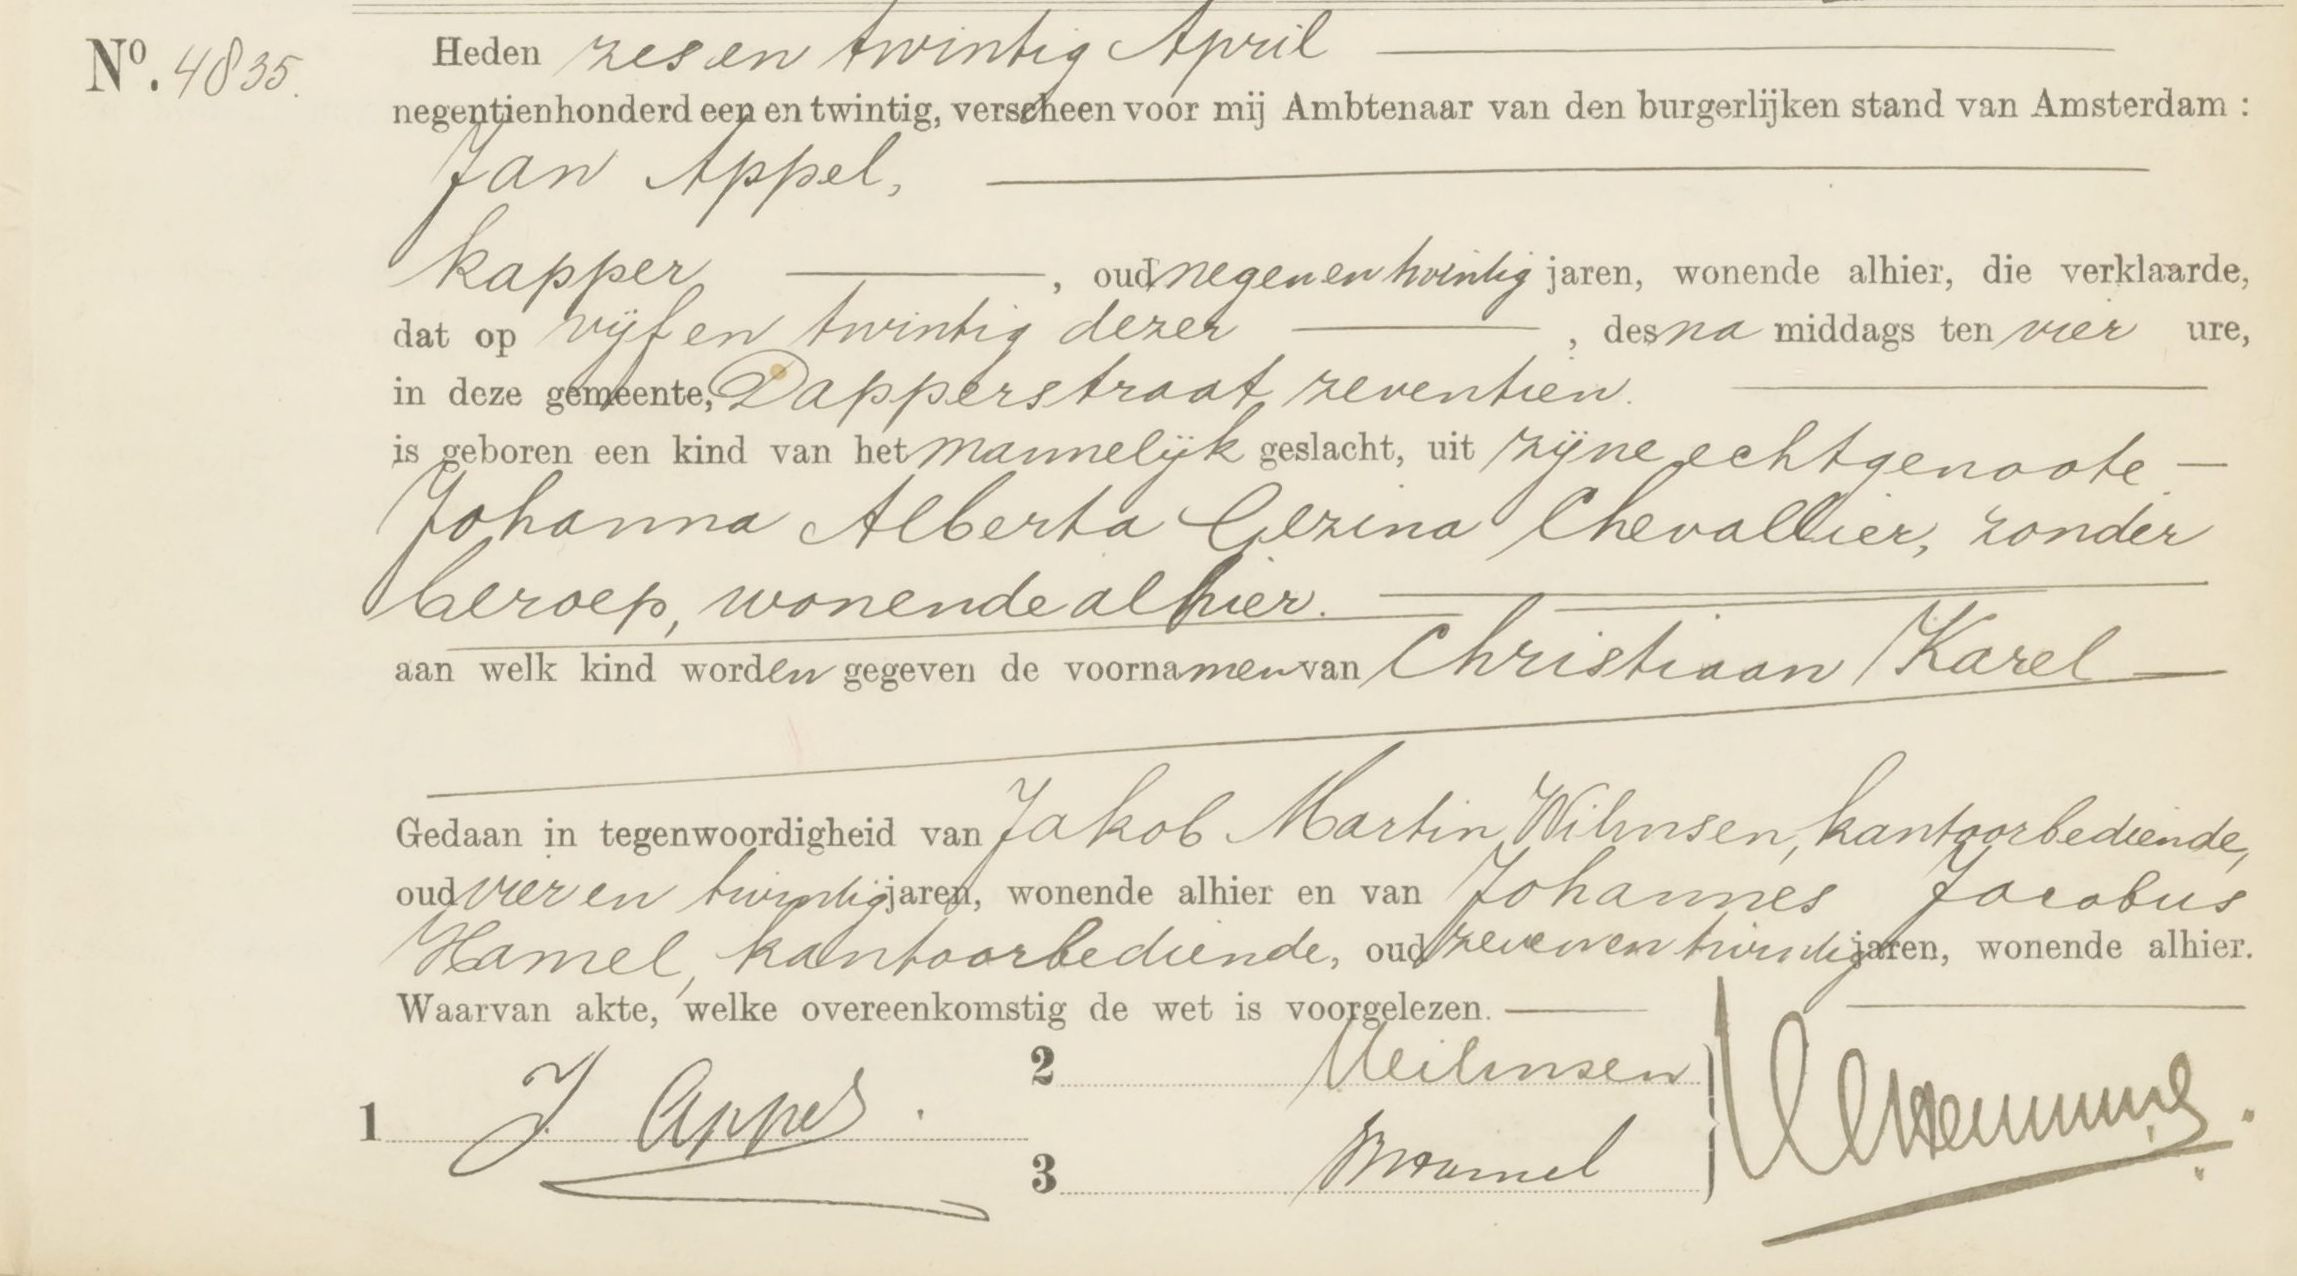 No. 4835.
Heden zes en twintig April
negentienhonderd een en twintig, verscheen voor mij Ambtenaar van den burgerlijken stand van Amsterdam :
Jan Appel,
kapper, oud negen en twintig jaren, wonende alhier, die verklaarde,
dat op vijf en twintig dezer, des na middags ten vier ure,
in deze gemeente, Dapperstraat zeventien.
is geboren een kind van het mannelijk geslacht, uit zijne echtgenoote
Johanna Alberta Gezina Chevallier, zonder
beroep, wonende alhier.
aan welk kind worden gegeven de voornamen van Christiaan Karel
Gedaan in tegenwoordigheid van Jakob Martin Wilmsen, kantoorbediende,
oud vier en twintig jaren, wonende alhier en van Johannes Jacobus
Hamel, kantoorbediende, oud zeven en twintig jaren, wonende alhier.
Waarvan akte, welke overeenkomstig de wet is voorgelezen.
1 J Appel.
2 Wilmsen
3 Hamel